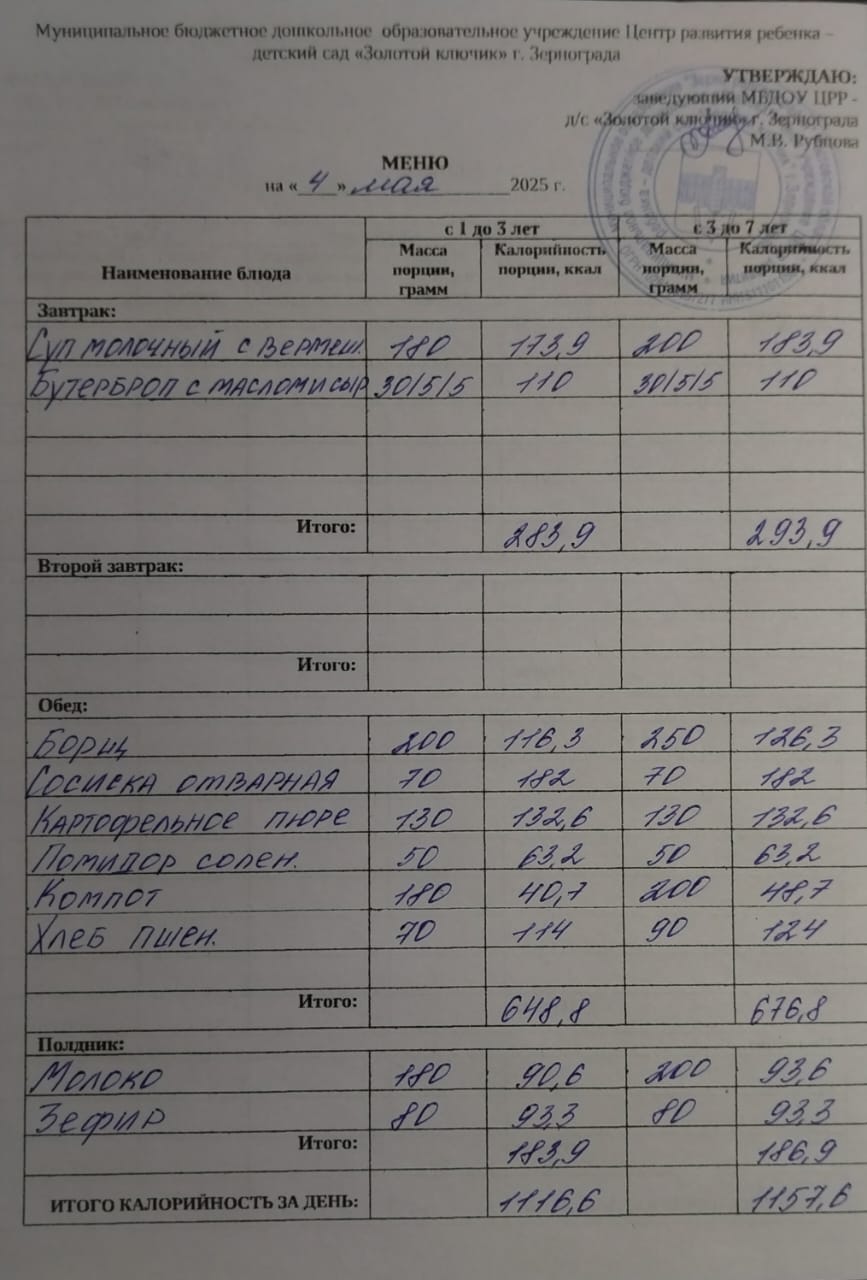 Муниципальное бюджетное дошкольное образовательное учреждение Центр развития ребенка –
детский сад «Золотой ключик» г. Зернограда
УТВЕРЖДАЮ:
заведующий МБДОУ ЦРР -
д/с «Золотой ключик» г. Зернограда
М.В. Рубцова
МЕНЮ
на « 4 » мая 2025 г.
Наименование блюда
с 1 до 3 лет с 3 до 7 лет
Масса порции, грамм Калорийность порции, ккал Масса порции, грамм Калорийность порции, ккал
Завтрак:
Суп молочный с вермеш. 180 173,9 200 183,9
Бутерброд с маслом и сыр 30/5/5 110 30/5/5 110
Итого: 283,9 293,9
Второй завтрак:
Итого:
Обед:
Борщ 200 116,3 250 126,3
Сосиска отварная 70 182 70 182
Картофельное пюре 130 132,6 130 132,6
Помидор солен. 50 63,2 50 63,2
Компот 180 40,7 200 48,7
Хлеб пшен. 70 114 90 124
Итого: 648,8 676,8
Полдник:
Молоко 180 90,6 200 93,6
Зефир 80 93,3 80 93,3
Итого: 183,9 186,9
ИТОГО КАЛОРИЙНОСТЬ ЗА ДЕНЬ: 1116,6 1157,6